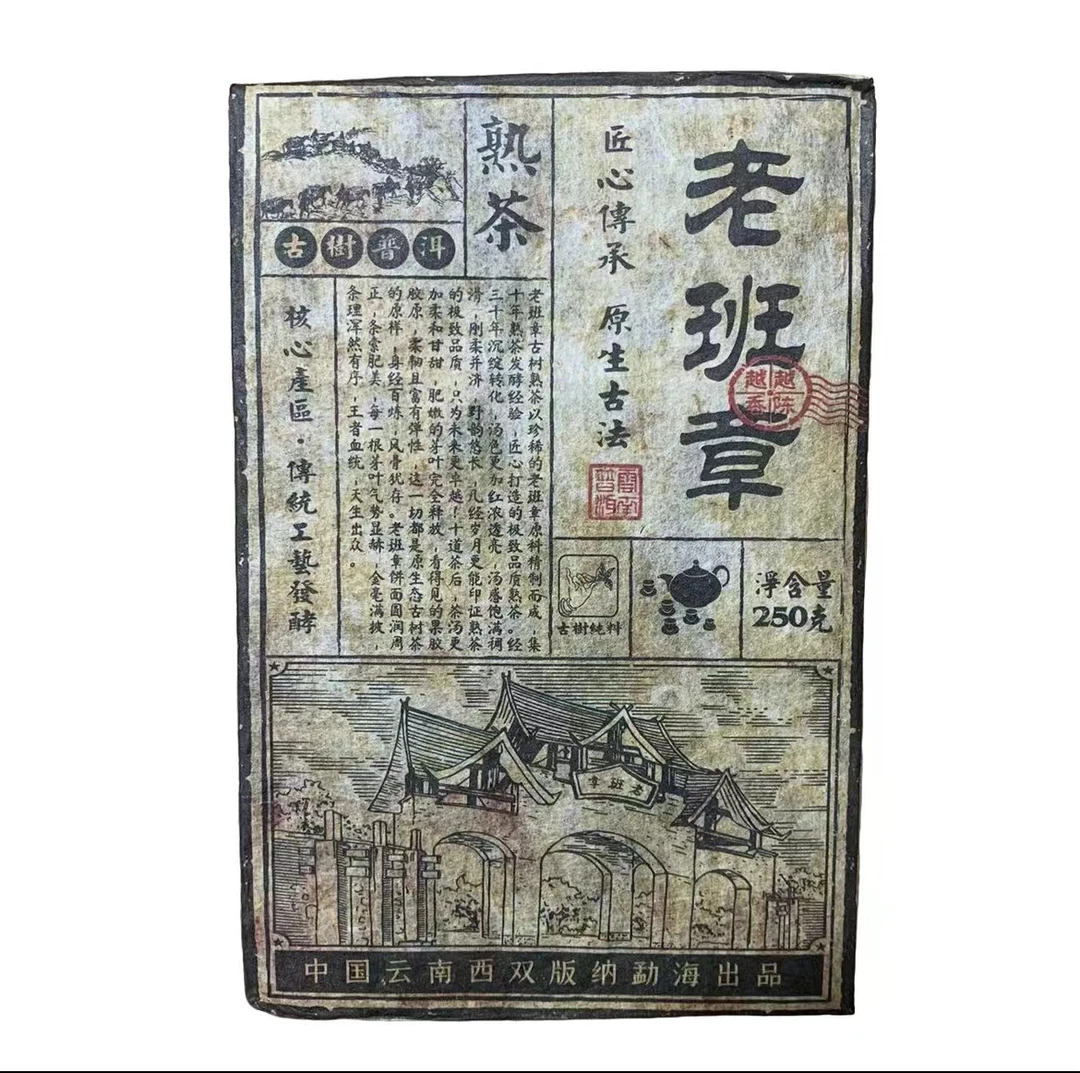 老班章
越陈
越香
匠心傳承 原生古法
雲南
普洱
熟茶
古樹普洱
老班章古树熟茶以珍稀的老班章原料精制而成,集
十年熟茶发酵经验,匠心打造的极致品质熟茶。经
三十年沉淀转化,汤色更加红浓透亮,汤感饱满稠
滑,刚柔并济,野韵悠长,几经岁月更能印证熟茶
的极致品质,只为未来更卓越!十道茶后,茶汤更
加柔和甘甜,肥嫩的芽叶完全释放,看得见的果胶
胶原,柔韧且富有弹性,这一切都是原生态古树茶
的原样,身经百炼,风骨犹存。老班章饼面圆润周
正,条索肥美,每一根芽叶气势显赫,金毫满披,
条理浑然有序,王者血统,天生出众。
核心產區·傳統工藝發酵
古樹純料
淨含量
250克
老班章
中国云南西双版纳勐海出品